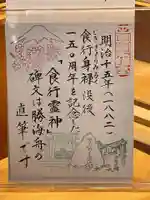 明治十五年(一八八二)
食行身禄没後
一五〇周年を記念した
「食行霊神」
碑文は勝海舟の
直筆です